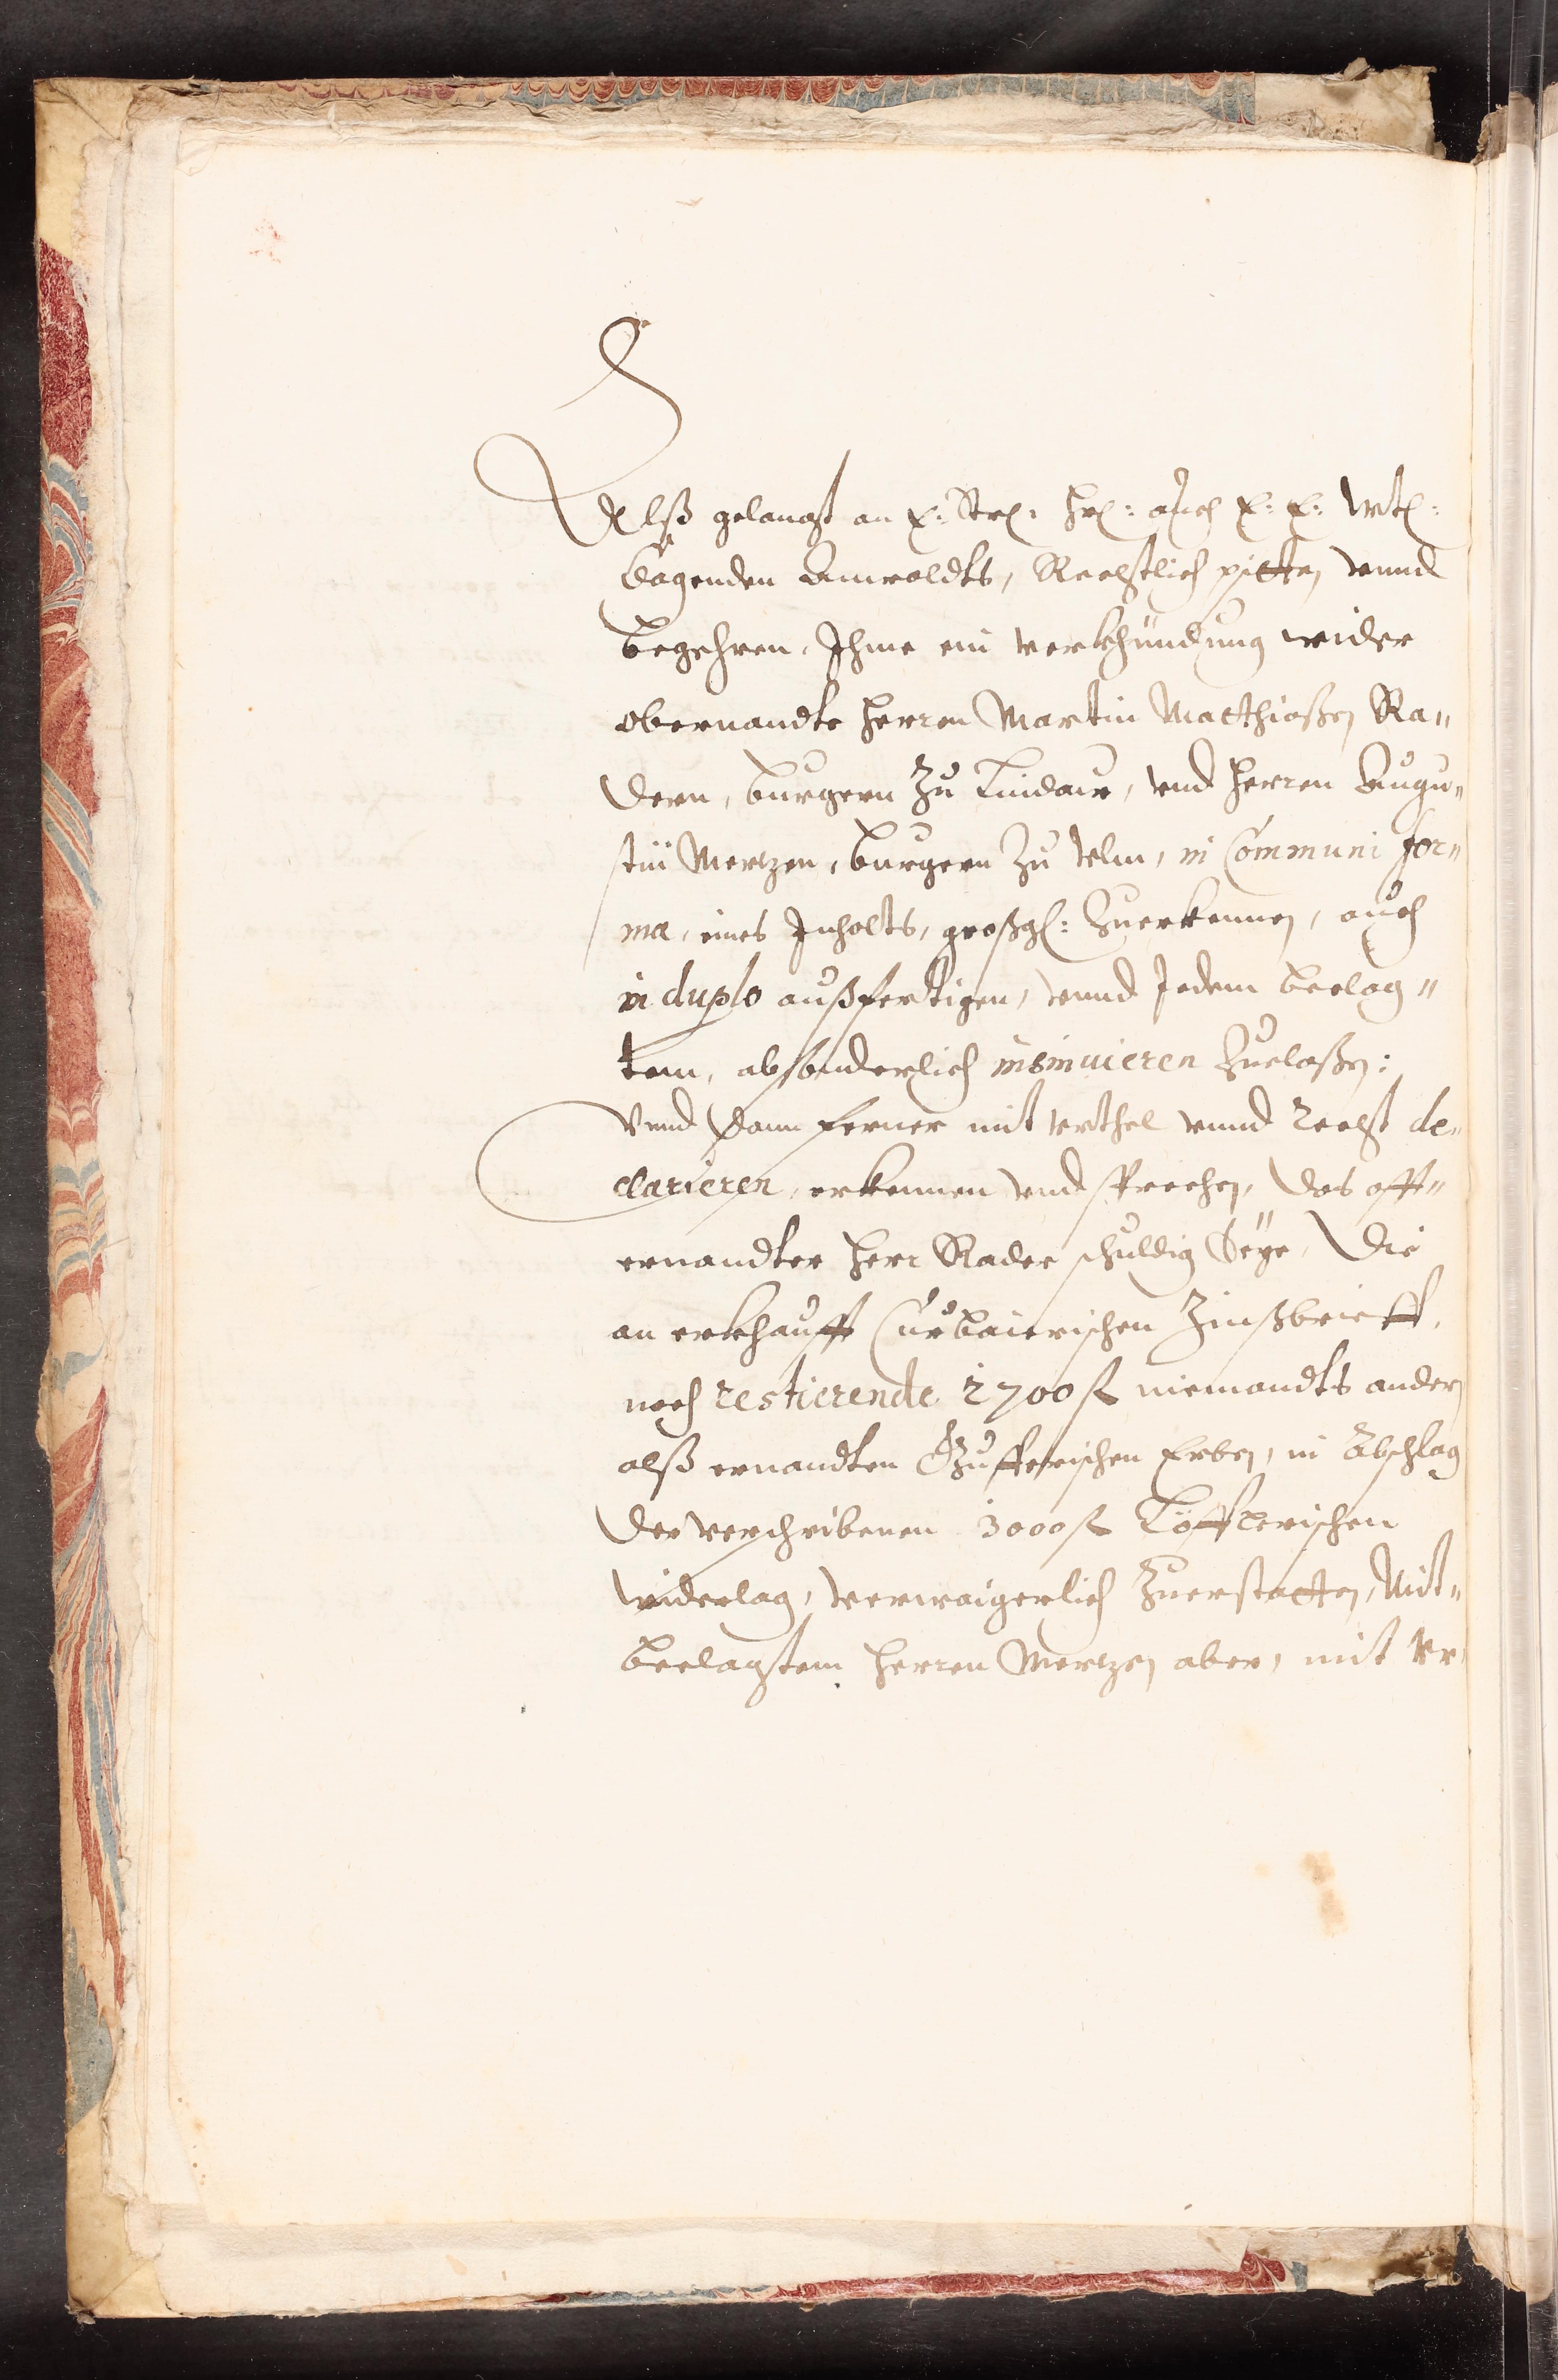 Alß gelangt an E: Str: hrl: auch E: E: Wtl:
Clagenden Anwaldts, Rechtlich pitten vnnd
begehren, Ihme ein verkhündung wider
obernandte herren Martin Matthiaßen Ra„
dern, burgern Zu Lindaw, vnd herren Augu„
stin Mertzen, burgern Zu Vlm, in Communi for„
ma, eines Inhalts, großgl: Zuerkennen, auch
in duplo außfertigen, vnnd Jedem beclag„
tem, absonderlich insinuieren Zuelaßen;
Vnnd dann ferner mit vrthel vnnd Recht de„
clarieren, erkennen vnd sprechen, das offt„
ernandter herr Rader schuldig Seye, die
an erkhaufft Curbaierischen Zinßbrieff,
noch restierende 2700 fl niemandts anders
alß ernandten Erben, in Abschlag
der verschribenen 3000 fl Löfflerischen
widerlag, verwaigerlich Zuerstatten, Mit„
beclagtem herren Mertzen aber, mit Vr„